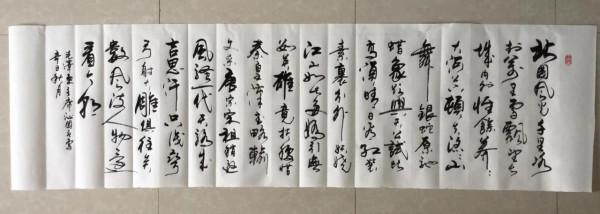 北国风光千里冰
封万里雪飘望长
城内外惟餘莽々
大河上下顿失滔々山
舞银蛇原驰
蜡象欲與天公试比
高须晴日看红装
素裹分外妖娆
江山如此多娇引無
数英雄竞折腰惜
秦皇汉武略输
文采唐宗宋祖稍逊
风骚一代天骄成
吉思汗只识弯
弓射大雕俱往矣
数风流人物还
看今朝
毛泽东主席沁园春雪
秋月